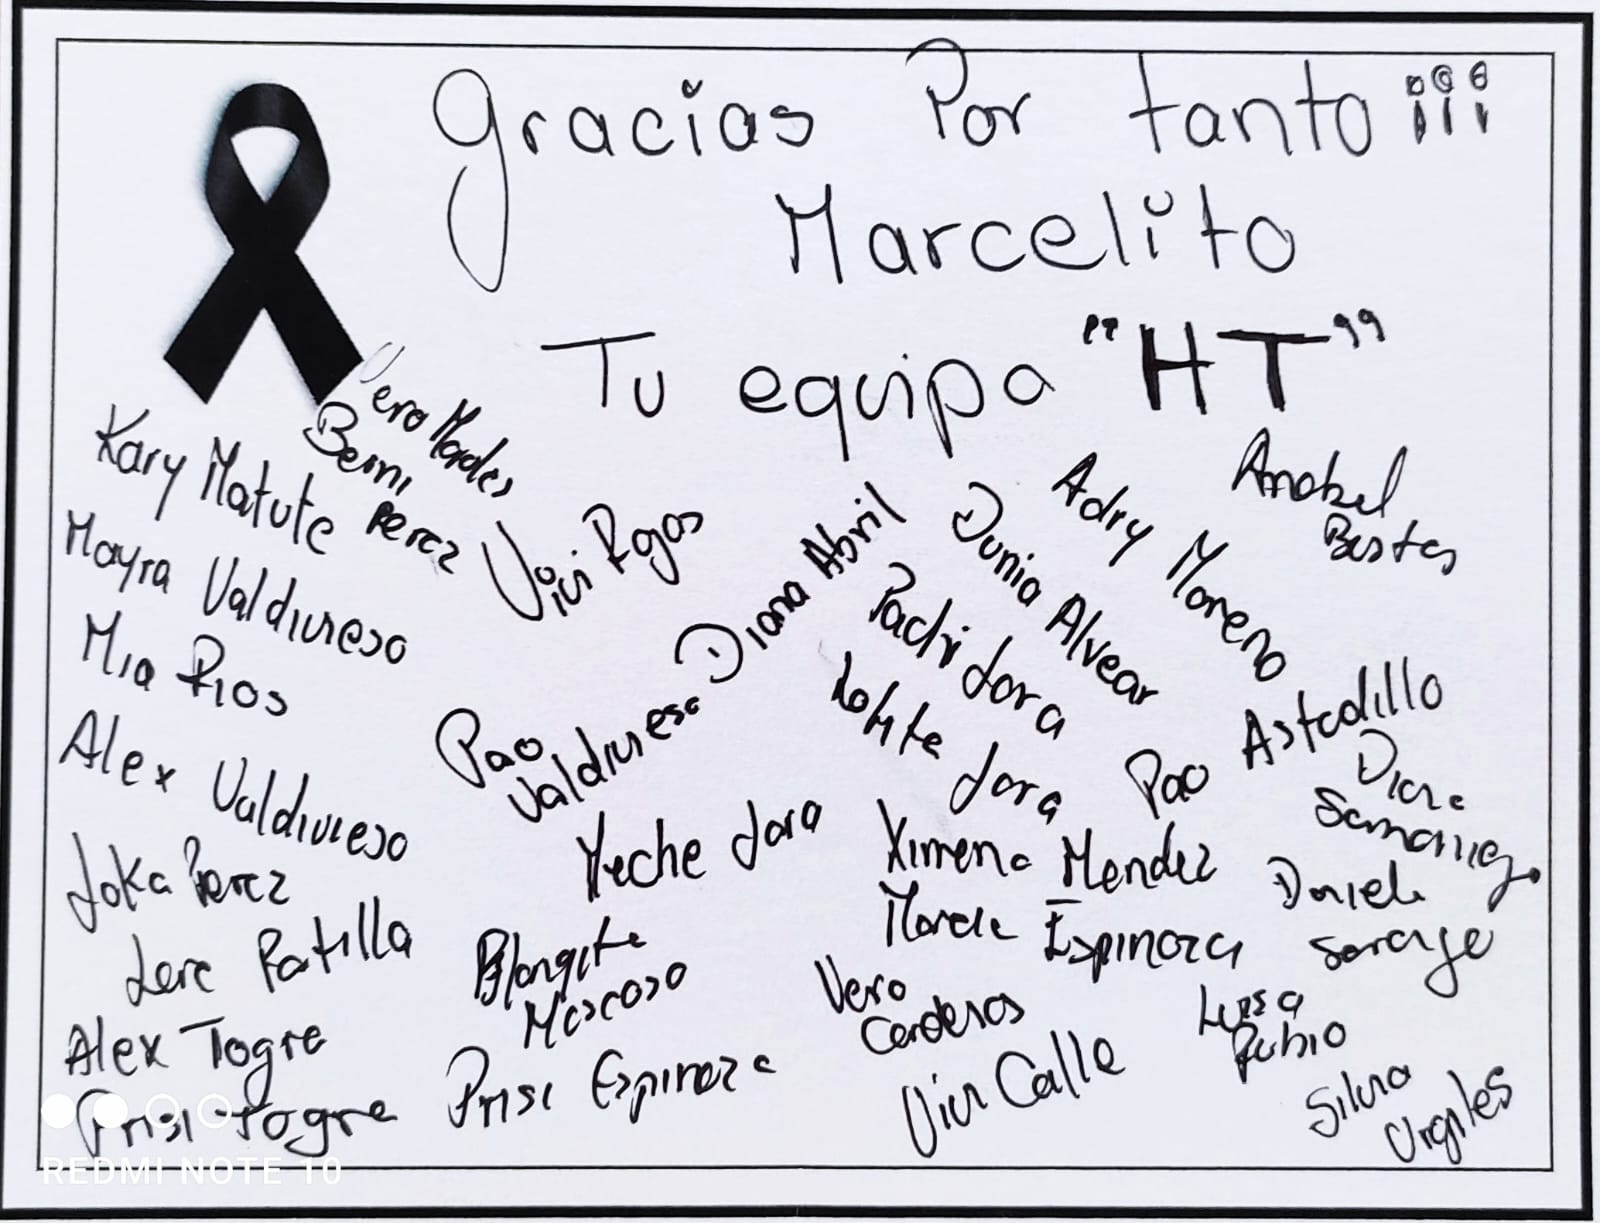 gracias Por tanto ¡¡¡
Marcelito
Tu equipo "HT"
Vero Morales
Berni Perez
Kary Matute
Mayra Valdivieso
Mia Rios
Alex Valdivieso
Joka Perez
Lore Patilla
Alex Togra
Prisi Togra
Vivi Rojas
Diana Abril
Pao Valdivieso
Meche Jara
Blanquita
Moscoso
Prisi Espinoza
Dunia Alvear
Pachi Jara
Lolita Jara
Adry Moreno
Anabel
Bustos
Pao Astudillo
Diana
Samaniego
Ximena Mendez
Daniela
Sarango
Espinoza
Vero
Cardenas
Vivi Calle
Luisa
Rubio
Silvia
Urgiles
REDMI NOTE 10